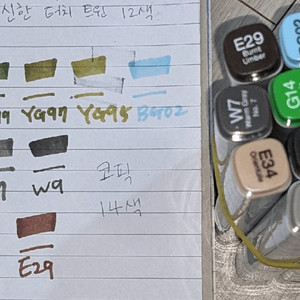 신한 터치 트윈 12색
YG97 YG95 BG02
W9
코픽
14색
E29
E29
Burnt
Umber
W7
Warm Gray
No. 7
G14
E34